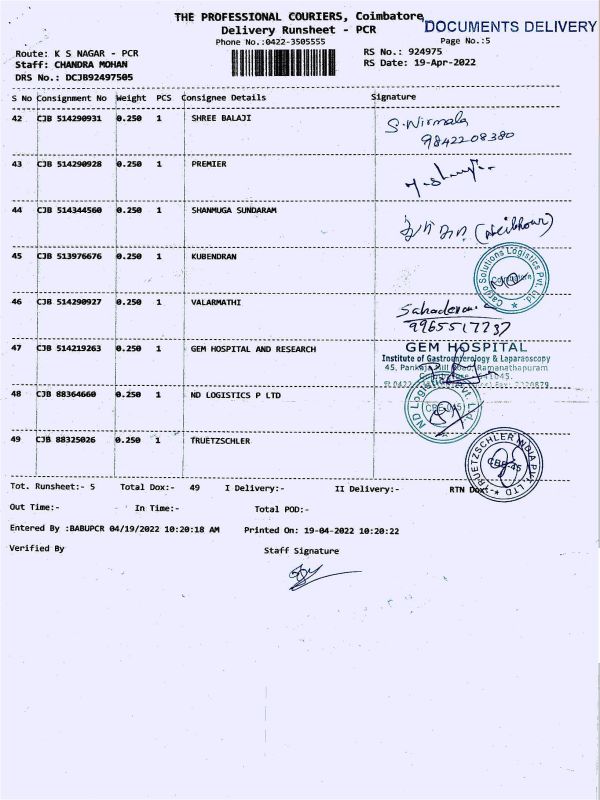 THE PROFESSIONAL COURIERS, Coimbatore
DOCUMENTS DELIVERY
Delivery Runsheet - PCR
Phone No.:0422-3505555
Page No.:5
Route: K S NAGAR - PCR
RS No.: 924975
Staff: CHANDRA MOHAN
RS Date: 19-Apr-2022
DRS No.: DCJB92497505
S No Consignment No Weight PCS Consignee Details Signature
42 CJB 514290931 0.250 1 SHREE BALAJI
S. Nirmala
9842208380
43 CJB 514290928 0.250 1 PREMIER
44 CJB 514344560 0.250 1 SHANMUGA SUNDARAM
(Neibhour)
45 CJB 513976676 0.250 1 KUBENDRAN
Cargo Solutions Logistics Pvt. Ltd.
Coimbatore
46 CJB 514290927 0.250 1 VALARMATHI
9965517237
47 CJB 514219263 0.250 1 GEM HOSPITAL AND RESEARCH
GEM HOSPITAL
Institute of Gastroenterology & Laparaoscopy
45, Pankaja Mill Road, Ramanathapuram
48 CJB 88364660 0.250 1 ND LOGISTICS P LTD
ND Logistics Pvt. Ltd.
CBE-45
49 CJB 88325026 0.250 1 TRUETZSCHLER
TRUETZSCHLER INDIA PVT. LTD
CBE-45
Tot. Runsheet:- 5 Total Dox:- 49 I Delivery:- II Delivery:- RTN Dox:-
Out Time:- In Time:- Total POD:-
Entered By :BABUPCR 04/19/2022 10:20:18 AM Printed On: 19-04-2022 10:20:22
Verified By Staff Signature